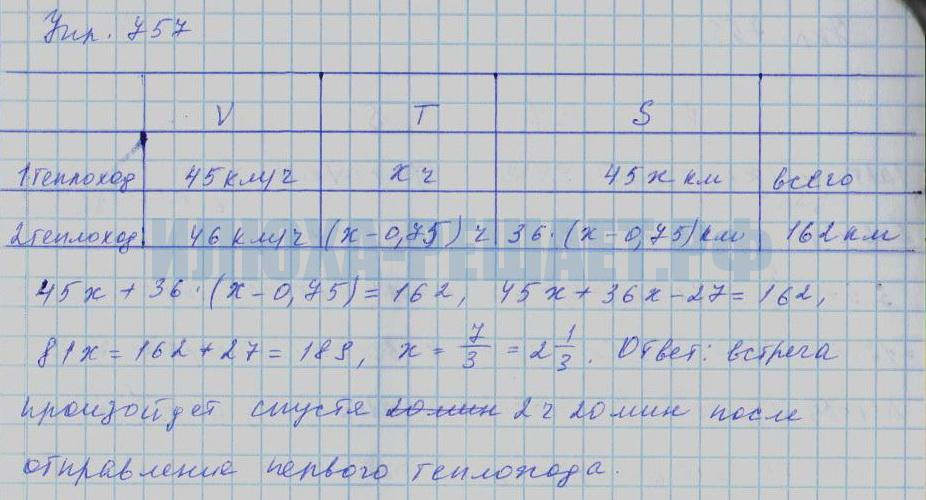 Упр. 757
V T S
1 теплоход 45 км/ч x ч 45x км всего
2 теплоход 46 км/ч (x-0,75) ч 36·(x-0,75) км 162 км
ИЛЮХА-РЕШАЕТ.РФ
45x + 36·(x-0,75) = 162, 45x + 36x - 27 = 162,
81x = 162 + 27 = 189, x = 7/3 = 2 1/3. Ответ: встреча
произойдет спустя 20 мин 2 ч 20 мин после
отправление первого теплохода.